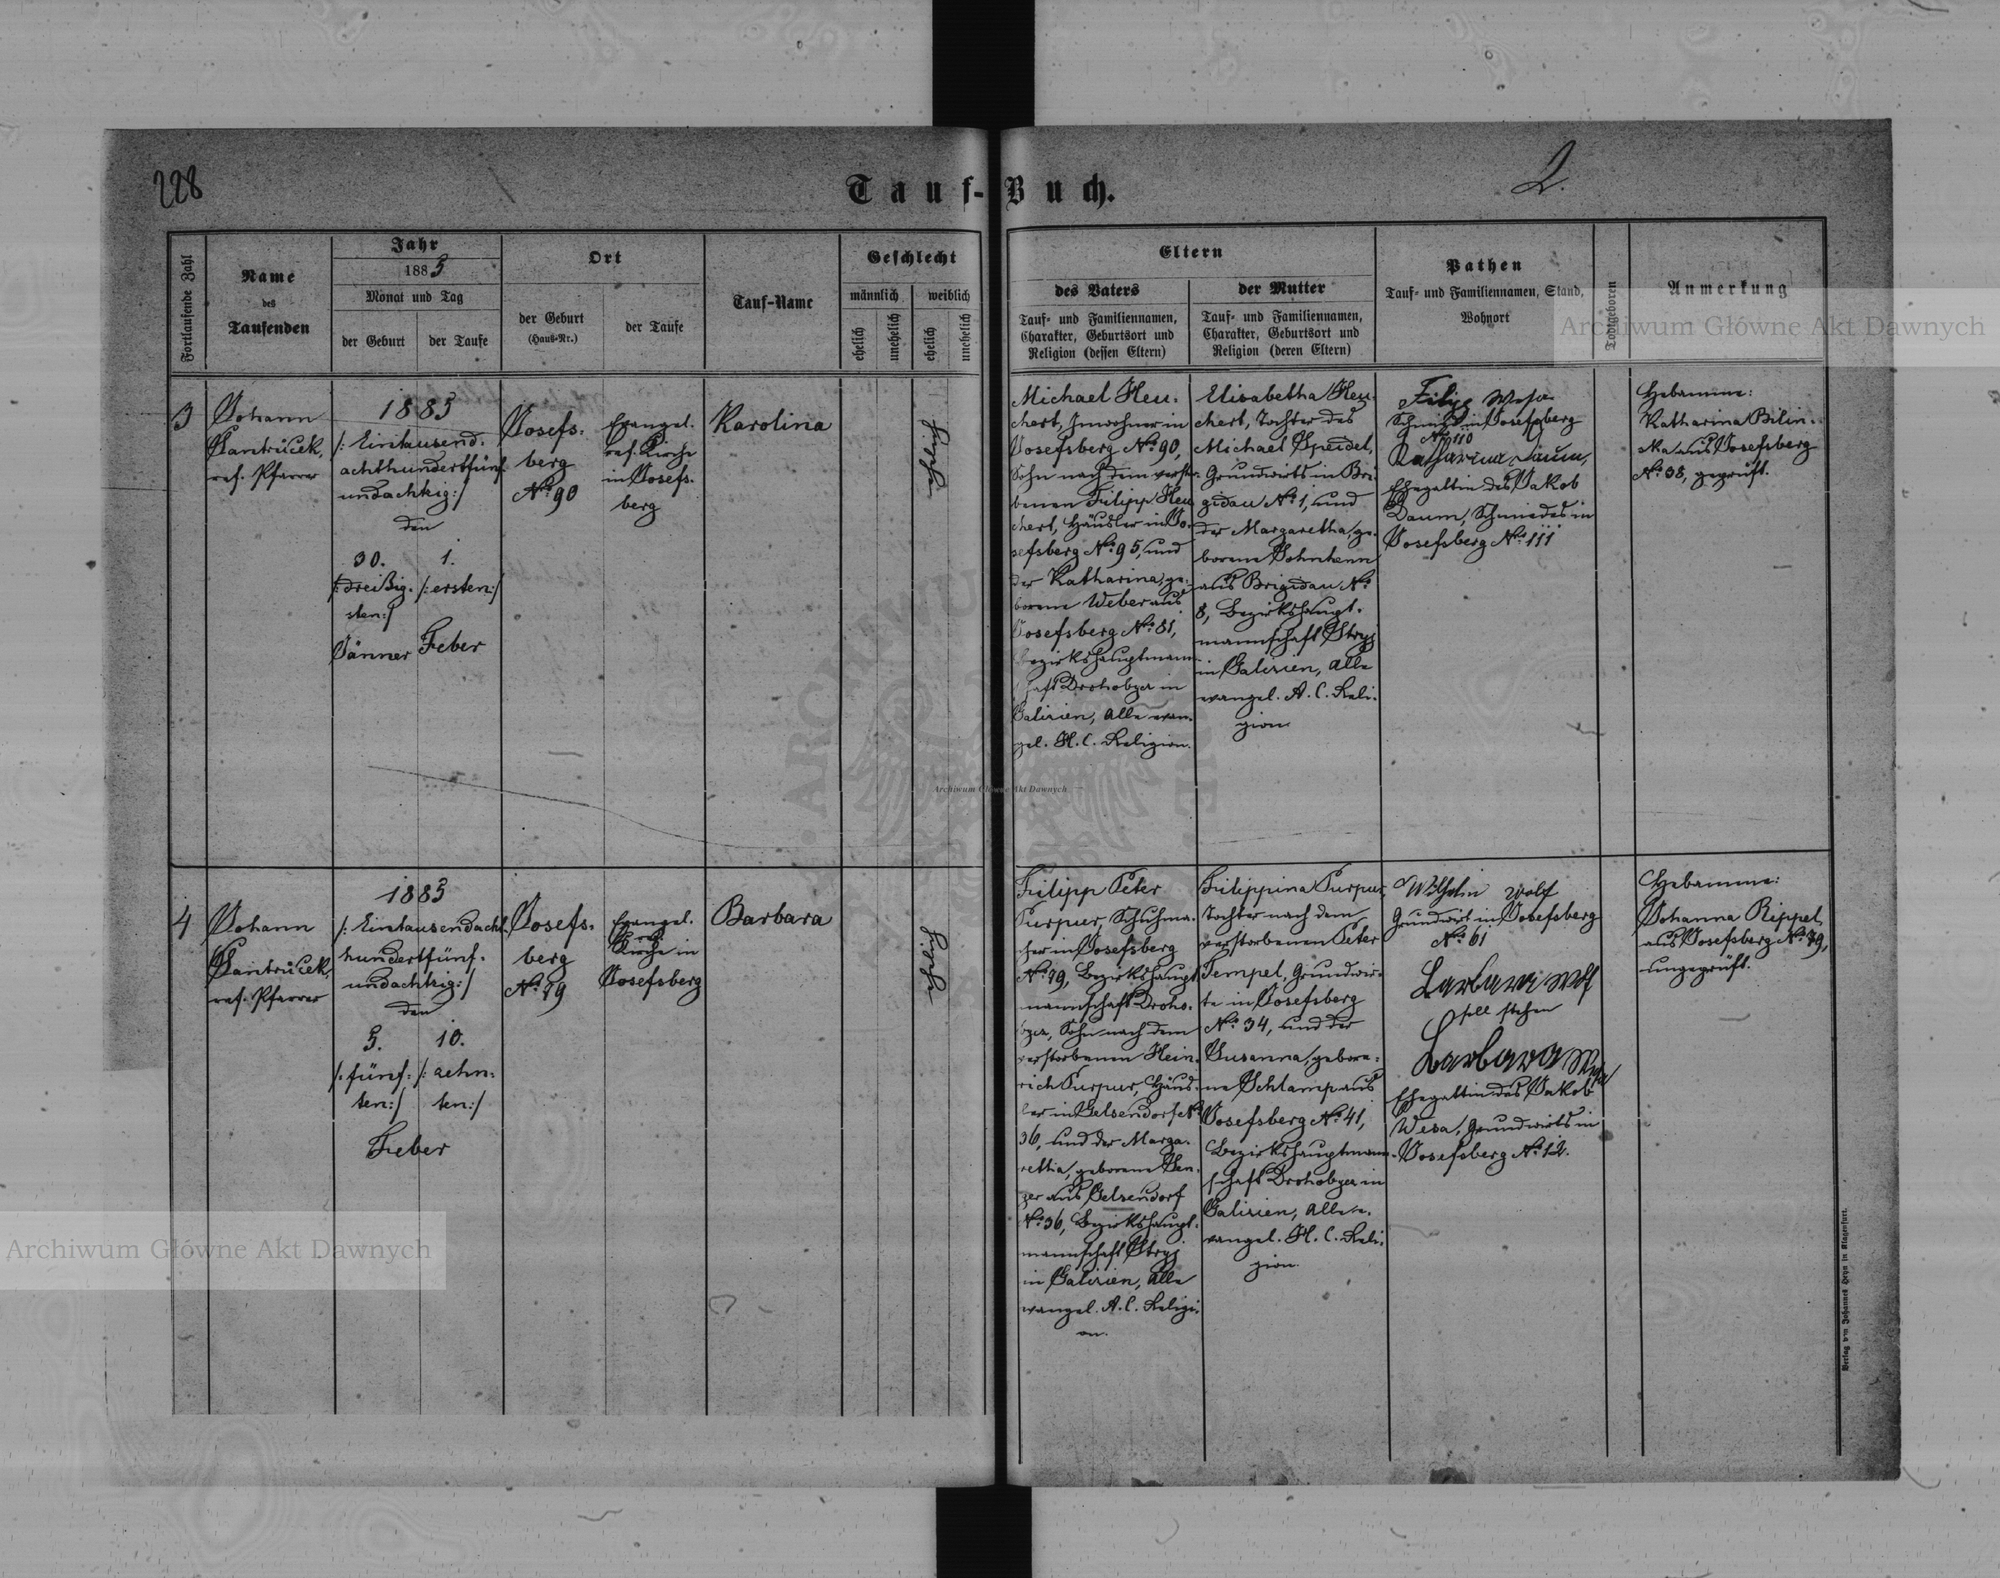 228
Tauf-Buch.
2.
Fortlaufende Zahl
Name
des
Taufenden
Jahr
1885
Monat und Tag
der Geburt
der Taufe
Ort
der Geburt
(Haus-Nr.)
der Taufe
Tauf-Name
Geschlecht
männlich
weiblich
ehelich
unehelich
ehelich
unehelich
Eltern
des Vaters
Tauf- und Familiennamen,
Charakter, Geburtsort und
Religion (dessen Eltern)
der Mutter
Tauf- und Familiennamen,
Charakter, Geburtsort und
Religion (deren Eltern)
Pathen
Tauf- und Familiennamen, Stand,
Wohnort
Todtgeboren
Anmerkung
3
Johann
Jantrucek,
ref. Pfarrer
1885
/: Eintausend-
achthundertfünf
undachtzig :/
den
30.
/: dreißig-
sten :/
Jänner
1.
/: ersten :/
Feber
Josefs-
berg
No. 90
Evangel.
ref. Kirche
in Josefs-
berg
Karolina
ehelich
Michael Heu-
chert, Inwohner in
Josefsberg No. 90,
Sohn nach dem verstor-
benen Filipp Heu
chert, Häusler in Jo-
sefsberg No. 95, und
der Katharina, ge-
borene Weber aus
Josefsberg No. 81,
Bezirkshauptmann-
schaft Drohobycz in
Galizien, alle evan-
gel. H. C. Religion.
Elisabetha Heu-
chert, Tochter des
Michael Speidel,
Grundwirts in Bri-
gidau No. 1, und
der Margaretha, ge-
borene
aus Brigidau No.
8, Bezirkshaupt-
mannschaft Stryj
in Galizien, alle
evangel. A. C. Reli-
gion.
Filipp Wesa
Schmid in Josefsberg
No. 110
Katharina Daum,
Ehegattin des Jakob
Daum, Schmiedes in
Josefsberg No. 111
Hebamme:
Katharina Bilin-
ska aus Josefsberg
No. 38, geprüft.
4
Johann
Jantrucek,
ref. Pfarrer
1885
/: Eintausendacht
hundertfünf-
undachtzig :/
den
5.
/: fünf-
ten :/
10.
/: zehn-
ten :/
Feber
Josefs-
berg
No. 79
Evangel.
ref.
Kirche in
Josefsberg
Barbara
ehelich
Filipp Peter
Purpur, Schuhma-
cher in Josefsberg
No. 79, Bezirkshaupt
mannschaft Droho-
bycz, Sohn nach dem
verstorbenen Hein-
rich Purpur, Häus-
ler in Gelsendorf No.
36, und der Marga-
retha, geborene
aus Gelsendorf
No. 36, Bezirkshaupt-
mannschaft Stryj
in Galizien, alle
evangel. A. C. Religi-
on.
Filippina Purpur,
Tochter nach dem
verstorbenen Peter
Tempel, Grundwir-
te in Josefsberg
No. 34, und der
Susanna, gebore-
ne Schlamp aus
Josefsberg No. 41,
Bezirkshauptmann-
schaft Drohobycz in
Galizien, alle e-
vangel. H. C. Reli-
gion.
Wilhelm Wolf
Grundwirt in Josefsberg
No. 61
Barbara
soll stehen
Barbara Wesa
Ehegattin des Jakob
Wesa, Grundwirts in
Josefsberg No. 12.
Hebamme:
Johanna Rippel
aus Josefsberg No. 79,
ungeprüft.
Verlag von Johannes Heyn in Klagenfurt.
Archiwum Główne Akt Dawnych
Archiwum Główne Akt Dawnych
Archiwum Główne Akt Dawnych